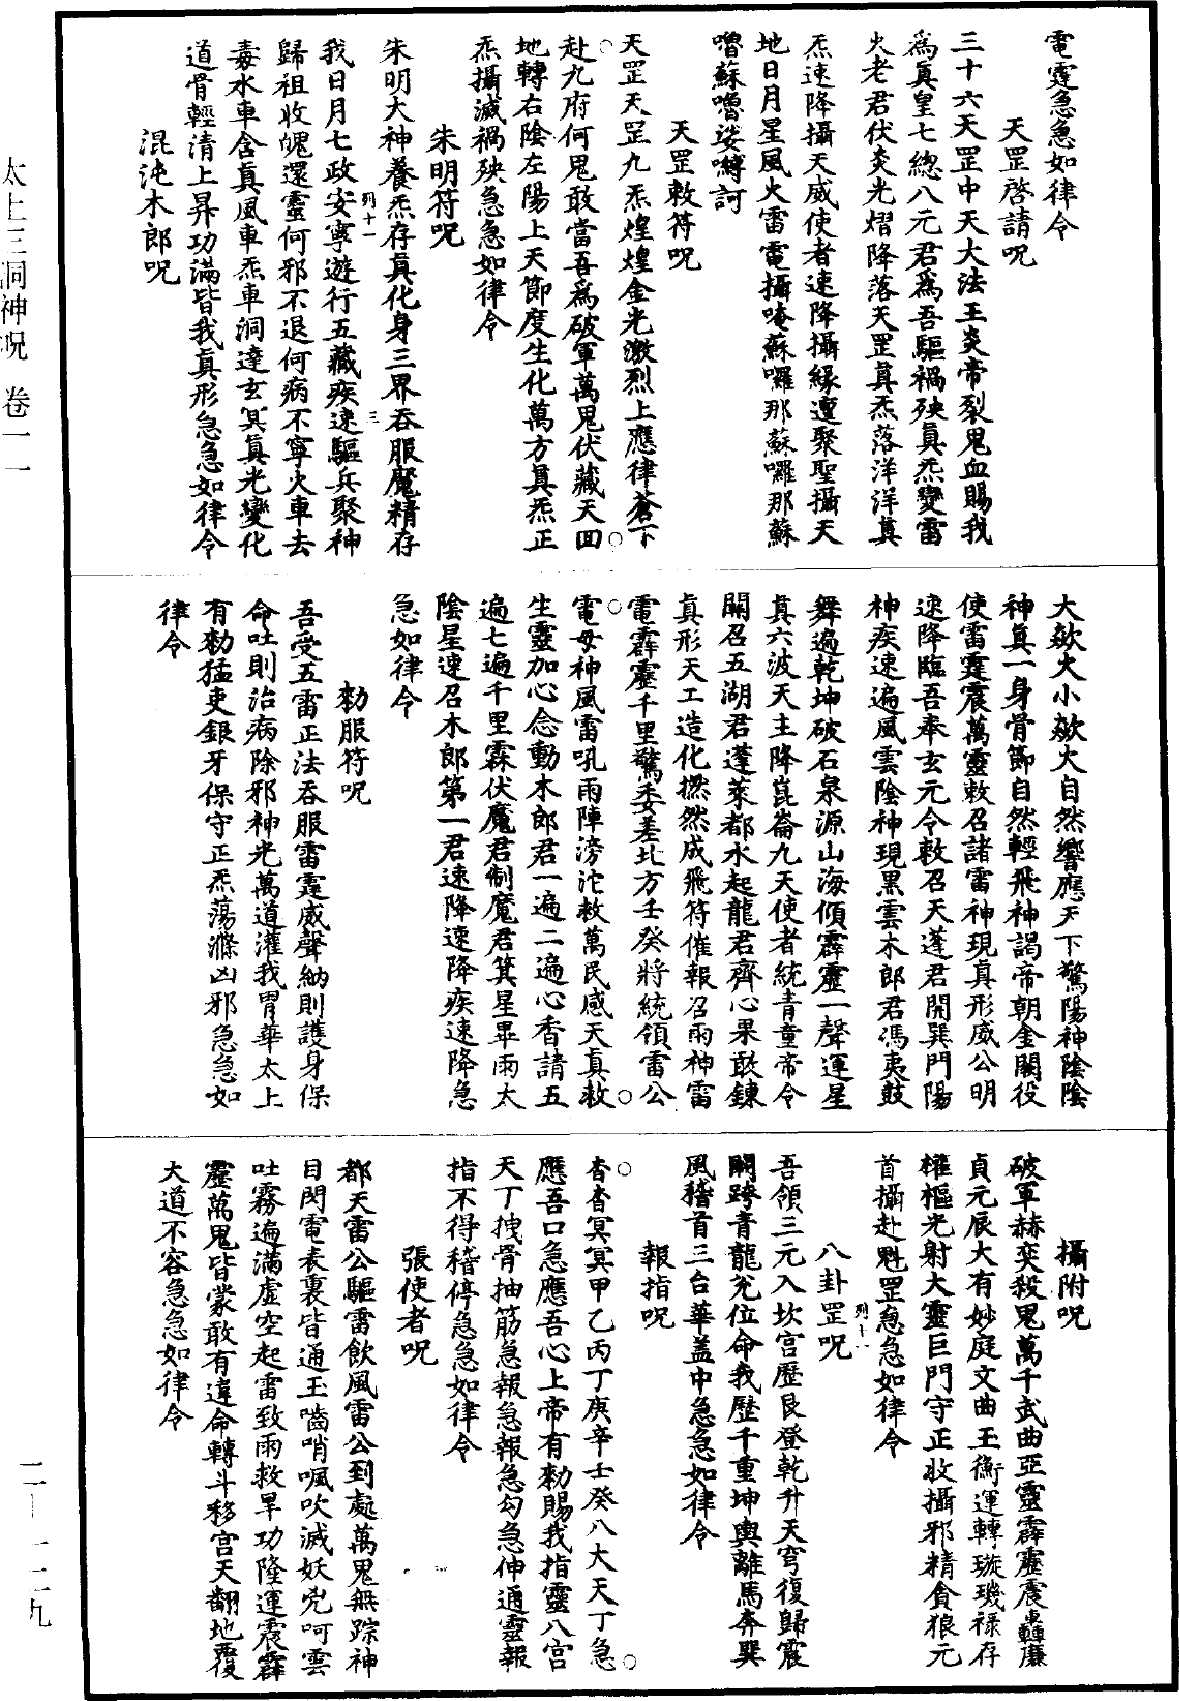 電霆急急如律令
天罡啓請呪
三十六天罡中天大法王炎帝裂鬼血賜我
為真皇七總八元君為吾驅禍殃真炁變雷
火老君伏炎光熠降落天罡真炁落洋洋真
炁速降攝天威使者速降攝緣遭聚聖攝天
地日月星風火雷電攝唵蘇囉那蘇囉那蘇
嚕蘇嚕娑嚩訶
天罡敕符呪
天罡天罡九炁煌煌金光激烈上應律蒼下
赴九府何鬼敢當吾為破軍萬鬼伏藏天回
地轉右陰左陽上天節度生化萬方真炁正
炁攝滅禍殃急急如律令
朱明符呪
朱明大神養炁存真化身三界吞服魔精存
列十一 三
我日月七政安寧遊行五藏疾速驅兵聚神
歸祖收魄還靈何邪不退何病不寧火車去
毒水車含真風車炁車洞達玄冥真光變化
道骨輕清上昇功滿皆我真形急急如律令
混沌木郎呪
大歘火小歘火自然響應天下驚陽神陰陰
神真一身骨節自然輕飛神謁帝朝金闕役
使雷霆震萬靈敕召諸雷神現真形威公明
速降臨吾奉玄元令敕召天蓬君開巽門陽
神疾速遍風雲陰神現黑雲木郎君馮夷鼓
舞遍乾坤破石泉源山海傾霹靂一聲運星
真六波天主降崑崙九天使者統青童帝令
關召五湖君蓬萊都水起龍君齊心果敢鍊
真形天工造化撚然成飛符催報召雨神雷
電霹靂千里驚委差北方壬癸將統領雷公
電母神風雷吼雨陣滂沱救萬民感天真救
生靈加心念動木郎君一遍二遍心香請五
遍七遍千里霖伏魔君制魔君箕星畢雨太
陰星速召木郎第一君速降速降疾速降急
急如律令
勑服符呪
吾受五雷正法吞服雷霆威聲納則護身保
命吐則治病除邪神光萬道灌我胃華太上
有勑猛吏銀牙保守正炁蕩滌凶邪急急如
律令
攝附呪
破軍赫奕殺鬼萬千武曲亞靈霹靂震轟廉
貞元辰大有妙庭文曲王衡運轉璇璣祿存
權樞光射大靈巨門守正收攝邪精貪狼元
首攝赴魁罡急急如律令
列十一
八卦罡呪
吾領三元入坎宮歷艮登乾升天穹復歸震
闕跨青龍兌位命我歷千重坤輿離馬奔巽
風稽首三台華蓋中急急如律令
報指呪
杳杳冥冥甲乙丙丁庚辛壬癸八大天丁急
應吾口急應吾心上帝有勑賜我指靈八宮
天丁拽骨抽筋急報急報急勾急伸通靈報
指不得稽停急急如律令
張使者呪
都天雷公驅雷飲風雷公到處萬鬼無踪神
目閃電表裏皆通玉噙哨嘔吹滅妖兇呵雲
吐霧遍滿虛空起雷致雨救旱功隆運震霹
靂萬鬼皆蒙敢有違命轉斗移宮天翻地覆
大道不容急急如律令
太上三洞神呪 卷一一
二—一二九